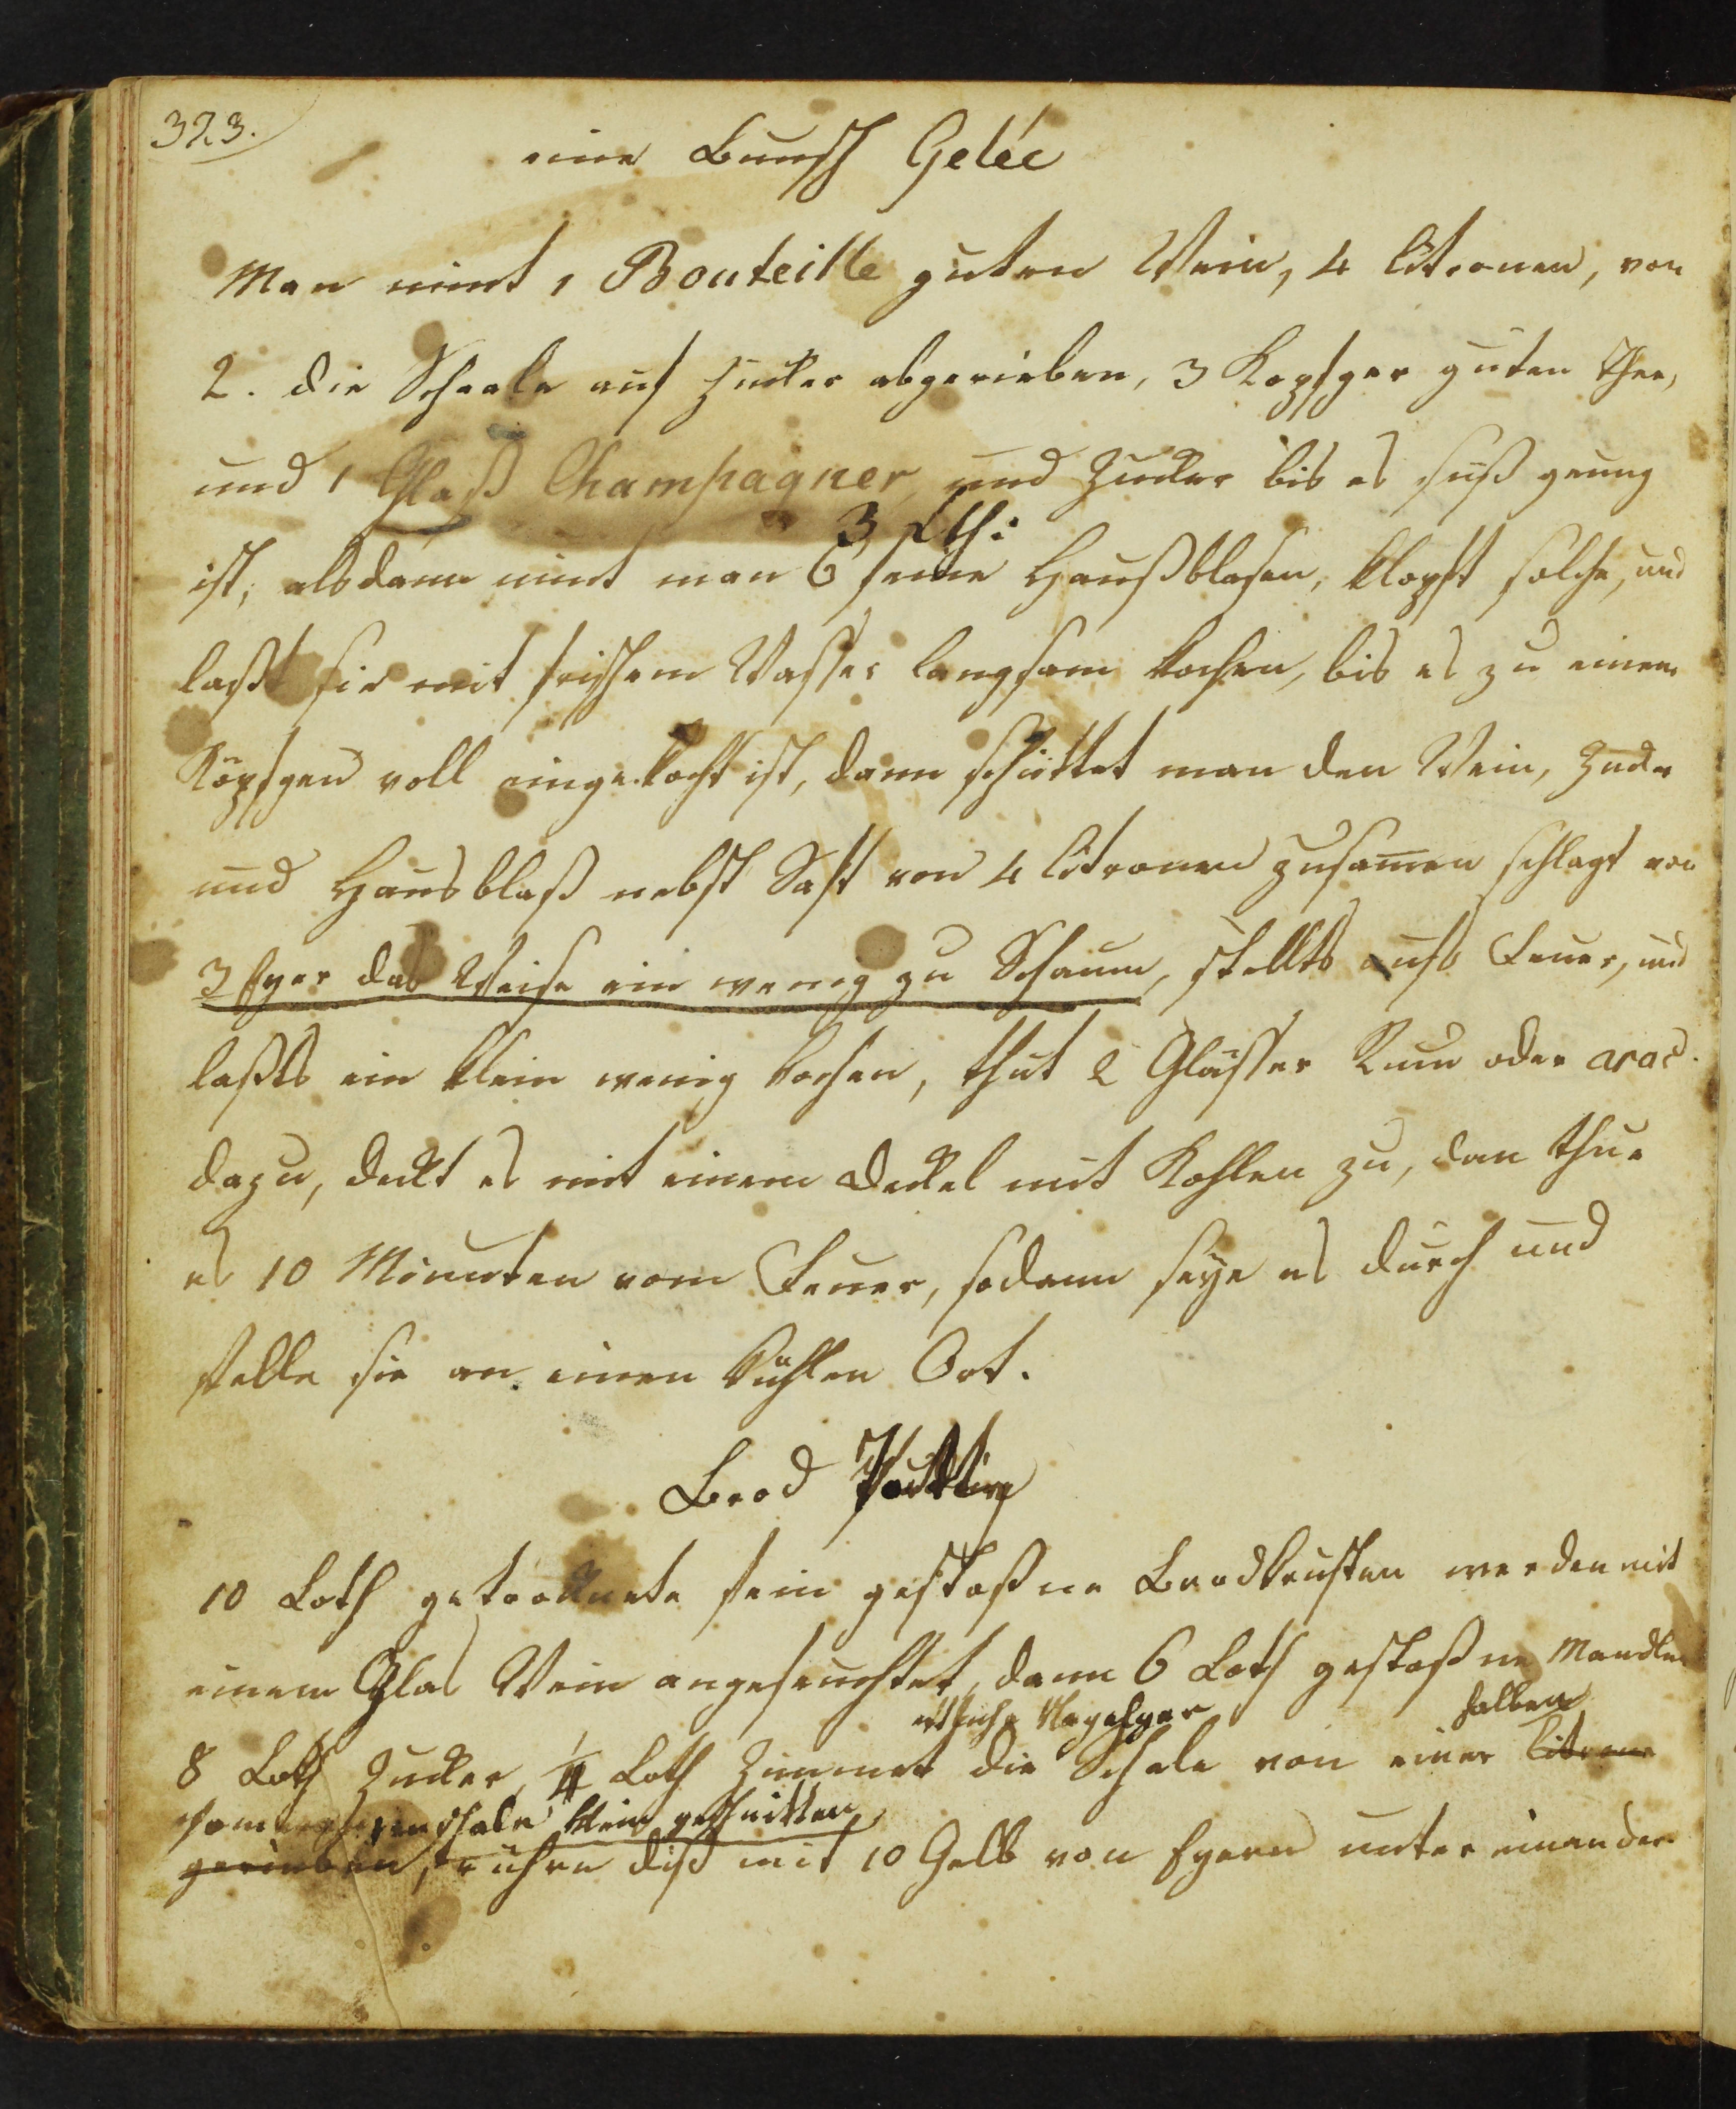 323.
eine Bunsch Gelée
Man nimt 1 Bouteille guten Wein, 4 Citronen, von
2. die Schaale auf Zucker abgerieben, 3 Kopfger guten Thee,
und 1 Glaß Champagner, und Zucker bis es süß genug
3 Lth:
ist, alsdann nimt man 6 feine Haußblasen, klopft solche, und
laßt sie mit frischem Wasser langsam kochen, bis es zu einem
Köpfgen voll eingekocht ist, dann schüttet man den Wein, Zucker
und Hausblaß nebst Saft von 4 Citronen zusamen schlagt von
3 Eyer das Weise ein wenig zu Schaum, stellts aufs Feuer, und
laßts ein klein wenig kochen, thut 2 Glässer Rum oder arac.
dazu, deckt es mit einem Deckel mit Kohlen zu, dan thue
es 10 Minuten vom Feuer, sodann seye es durch und
stelle sie an einen kühlen Ort.
Brod Pudding
10 Loth getrocknete fein gestoßne Brodkrusten werden mit
einem Glas Wein angefeuchtet, dann 6 Loth gestoßne Mandlen
etliche Nägelger halben
8 Loth Zucker, 1/4 Loth Zimmet die Schale von einer Citrone
Pomeranzenschale klein geschnitten
gerieben, rühre diß mit 10 Gelb von Eyern unter einander